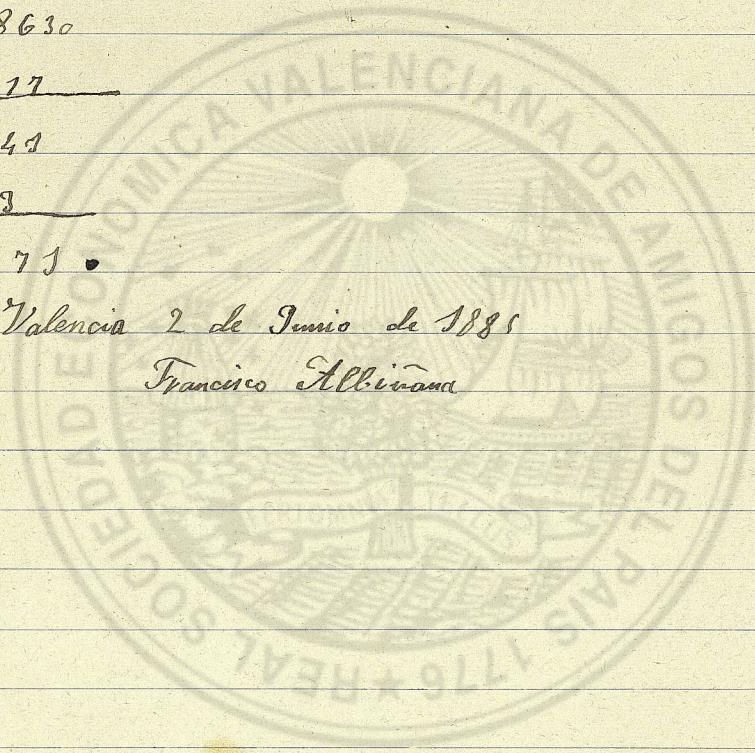 8630
17
41
3
71
Valencia 2 de Junio de 1885
Francisco Albiñana
REAL SOCIEDAD ECONOMICA VALENCIANA DE AMIGOS DEL PAIS 1776